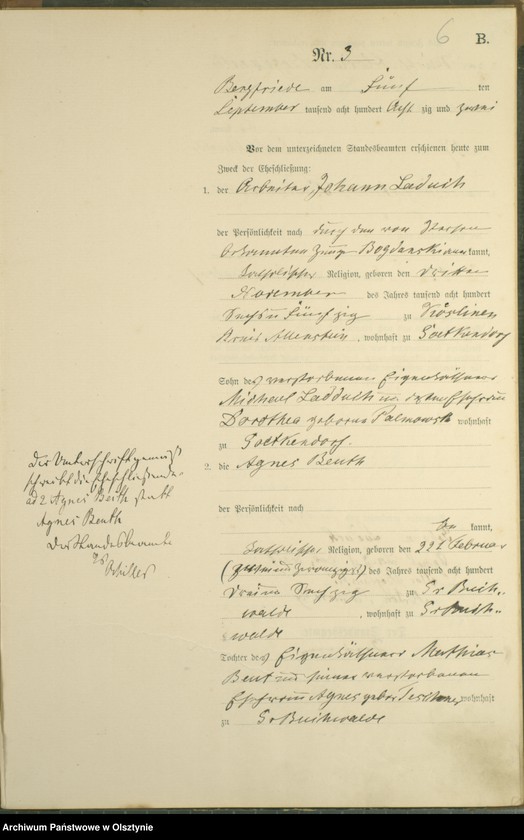 6
B.
Nr. 3
Bergfriede am Fünf ten
September tausend acht hundert Acht zig und zwei
Vor dem unterzeichneten Standesbeamten erschienen heute zum
Zweck der Eheschließung:
1. der Arbeiter Johann
der Persönlichkeit nach durch den von Person
bekannten Zeug Bogdanski anerkannt,
katholischer Religion, geboren den dritten
November des Jahres tausend acht hundert
Sechs u Fünf zig zu
Kreis Allenstein, wohnhaft zu Goetkendorf
Sohn des verstorbenen Eigenkäthner
Michael
Dorothea geborne wohnhaft
zu Goetkendorf.
2. die Agnes Beuth
der Persönlichkeit nach
kannt,
katholischer Religion, geboren den 22t Februar
(zwei und zwanzigst) des Jahres tausend acht hundert
drei und Sechzig zu Gr Buch-
walde, wohnhaft zu Gr Buch-
walde
Tochter des Eigenkäthner Mathias
und seiner verstorbenen
Ehefrau Agnes gebor wohnhaft
zu Gr Buchwalde
Der Unterschrift gemäß
schreibt die Eheschließende
ad 2 Agnes Beith statt
Agnes Beuth
Der Standesbeamte
Archiwum Państwowe w Olsztynie